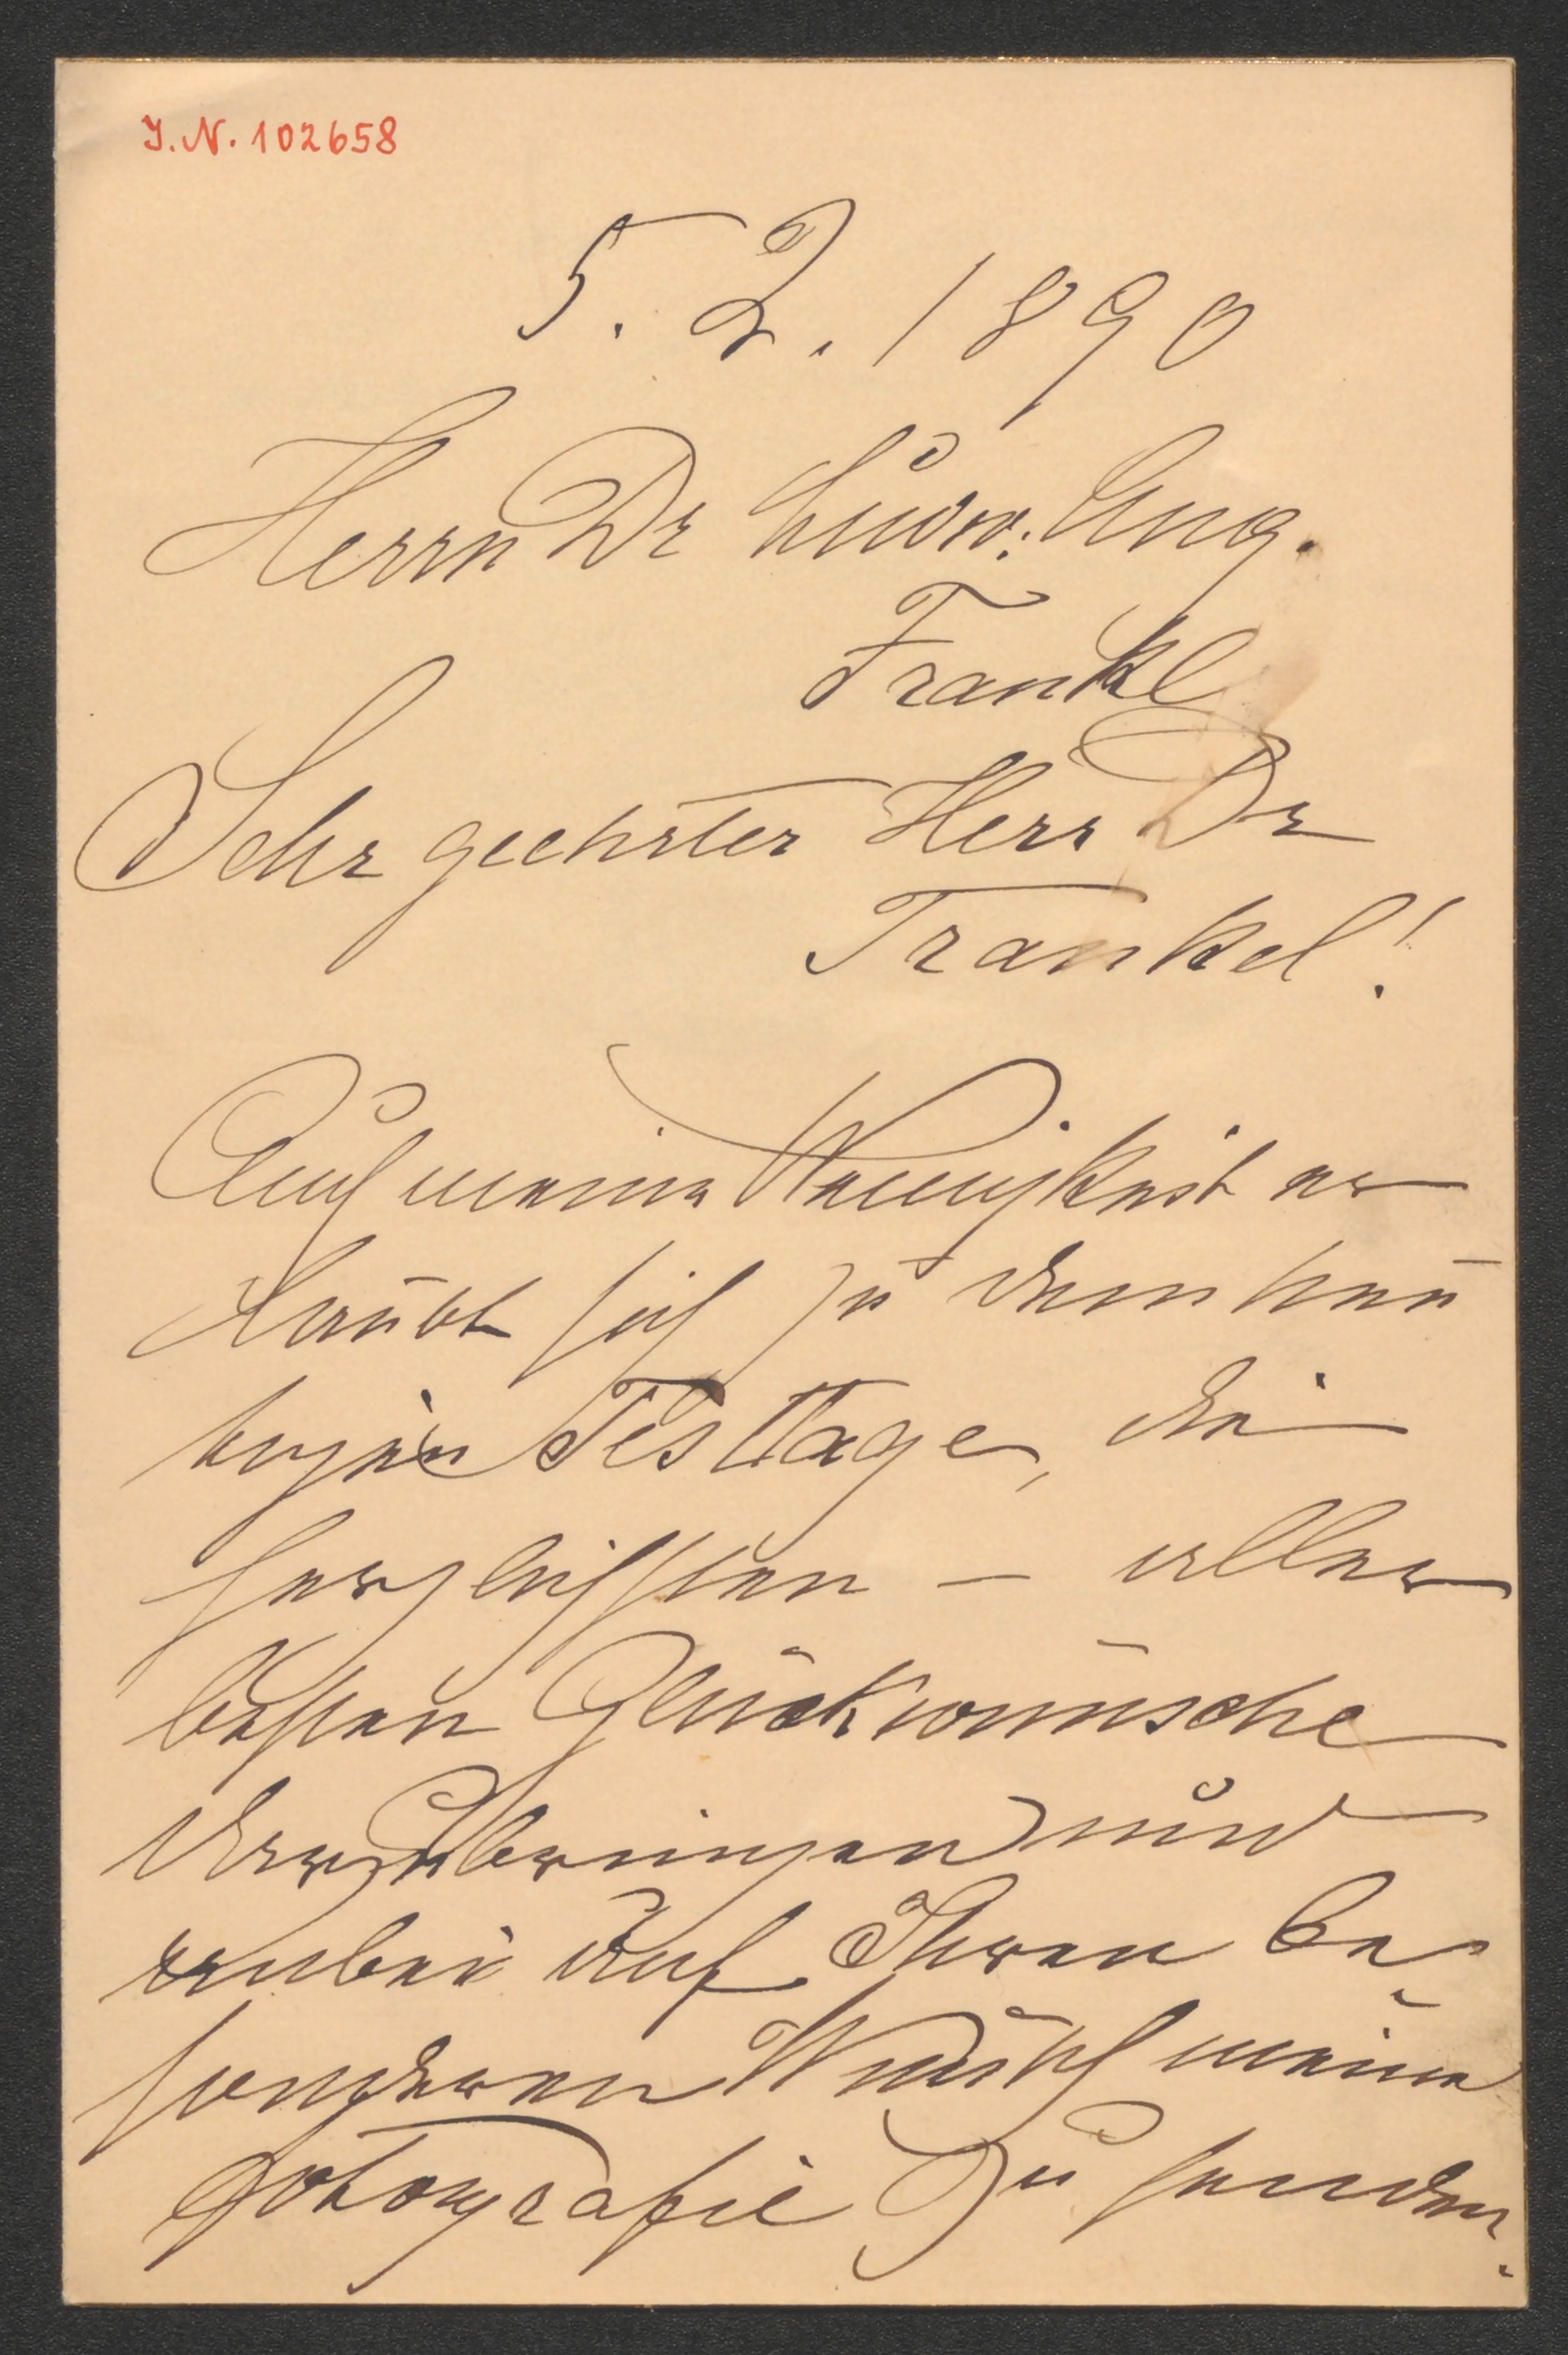 J.N. 102658
5. 2. 1890
Herrn Dr Ludw: Aug.
Frankl
Sehr geehrter Herr Dr
Frankel!
Auch meine Wenigkeit er
laubt sich zu dem heu
tigen Festtage, die
herzlichsten – aller
besten Glückwünsche
darzubringen und
anbei auf Ihren be
sonderen Wunsch meine
Fotografie zu senden.